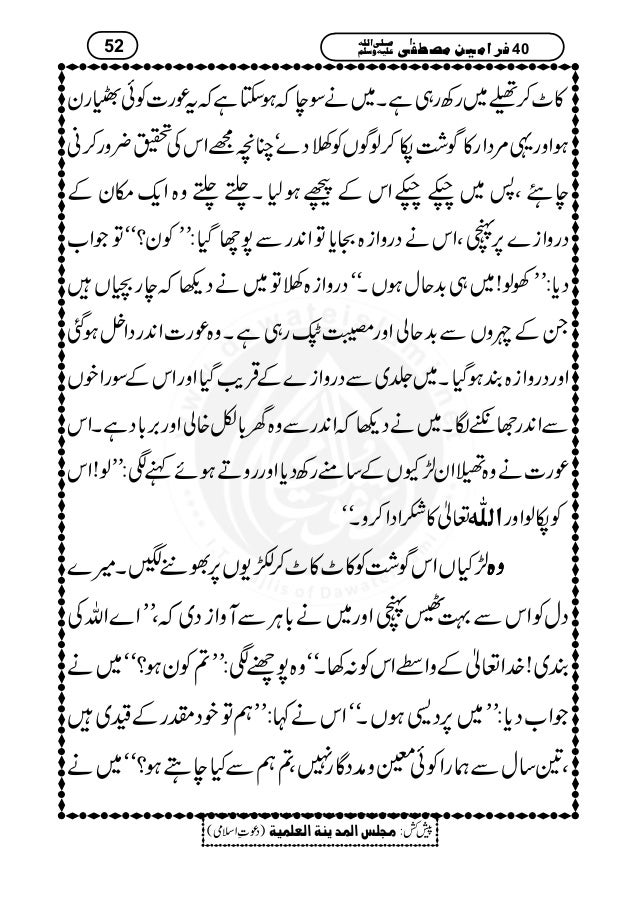 52
40 فرامین مصطفٰی صلی اللہ علیہ وسلم
کاٹ کر تھیلے میں رکھ رہی ہے۔ میں نے سوچا کہ ہو سکتا ہے کہ یہ عورت کوئی بھٹیارن
ہو اور یہی مردار کا گوشت پکا کر لوگوں کو کھلا دے، چنانچہ مجھے اس کی تحقیق ضرور کرنی
چاہئے ، پس میں چپکے چپکے اس کے پیچھے ہو لیا ۔ چلتے چلتے وہ ایک مکان کے
دروازے پر پہنچی ، اس نے دروازہ بجایا تو اندر سے پوچھا گیا: ’’ کون؟ ‘‘ تو جواب
دیا: ’’ کھولو! میں ہی بدحال ہوں ۔ ‘‘ دروازہ کھلا تو میں نے دیکھا کہ چار بچیاں ہیں
جن کے چہروں سے بدحالی اور مصیبت ٹپک رہی ہے ۔ وہ عورت اندر داخل ہوگئی
اور دروازہ بند ہو گیا ۔ میں جلدی سے دروازے کے قریب گیا اور اس کے سوراخوں
سے اندر جھانکنے لگا۔ میں نے دیکھا کہ اندر سے وہ گھر بالکل خالی اور برباد ہے۔ اس
عورت نے وہ تھیلا ان لڑکیوں کے سامنے رکھ دیا اور روتے ہوئے کہنے لگی: ’’ لو! اس
کو پکا لو اور اللہ تعالیٰ کا شکر ادا کرو۔ ‘‘
وہ لڑکیاں اس گوشت کو کاٹ کاٹ کر لکڑیوں پر بھوننے لگیں۔ میرے
دل کو اس سے بہت ٹھیس پہنچی اور میں نے باہر سے آواز دی کہ، ’’ اے اللہ کی
بندی! خدا تعالیٰ کے واسطے اس کو نہ کھا۔ ‘‘ وہ پوچھنے لگی: ’’ تم کون ہو؟ ‘‘ میں نے
جواب دیا: ’’ میں پردیسی ہوں ۔ ‘‘ اس نے کہا: ’’ ہم تو خود مقدر کے قیدی ہیں
، تین سال سے ہمارا کوئی معین و مددگار نہیں، تم ہم سے کیا چاہتے ہو؟ ‘‘ میں نے
پیش کش: مجلس المدینۃ العلمیۃ (دعوتِ اسلامی)